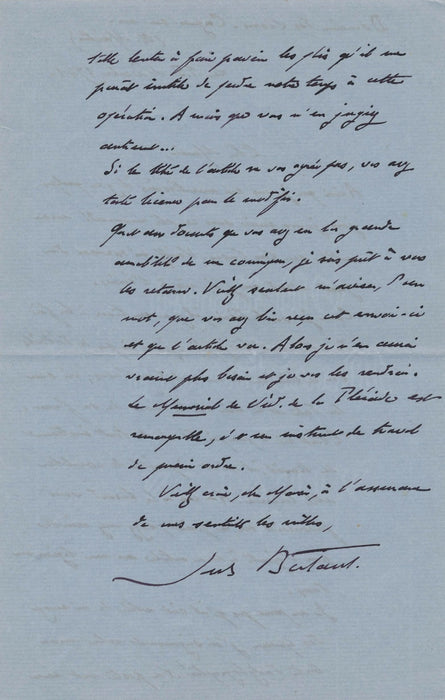 telle lente à faire parvenir les plis qu'il me
paraît inutile de perdre notre temps à cette
opération. A moins que vous n'en jugiez
autrement...
Si le titre de l'article ne vous agrée pas, vous avez
toute licence pour le modifier.
Quant aux documents que vous avez eu la grande
amabilité de me communiquer, je suis prêt à vous
les retourner. Veuillez seulement m'aviser, d'un
mot, que vous avez bien reçu cet envoi-ci
et que l'article va. Alors je n'en aurai
vraiment plus besoin et je vous les rendrai.
Le Memorial de la Pléiade est
remarquable, c'est un instrument de travail
de premier ordre.
Veuillez croire, cher Monsieur, à l'assurance
de mes sentiments les meilleurs,
Jules Bertaut.